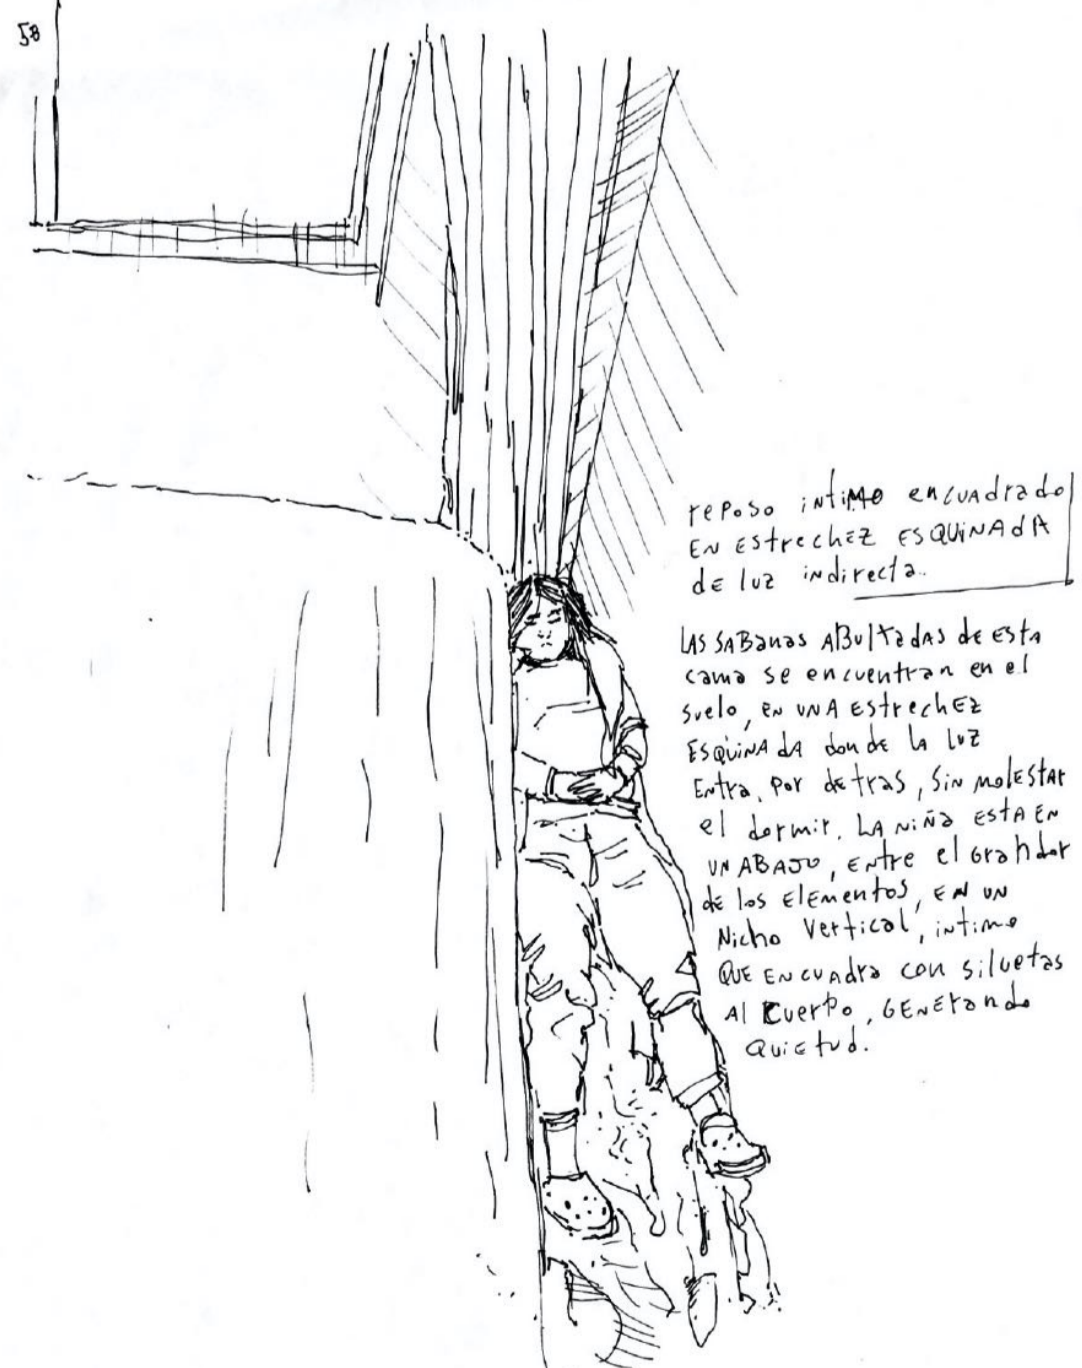 58
reposo íntimo encuadrado
EN EstrechEZ ESQUINAdA
dE luz indirecta.
LAS SABanas ABultadas dE Esta
cama se encuentran en el
suelo, EN UNA EstrechEZ
ESQUINAdA donde la luz
Entra, Por detras, Sin molEstar
el dormir. LA niña ESTA EN
UN ABAJO, Entre el Grandor
de los ElEmentos, EN UN
Nicho Vertical, intimo
QUE ENcuadra con siluetas
Al Cuerpo, GENErando
Quietud.